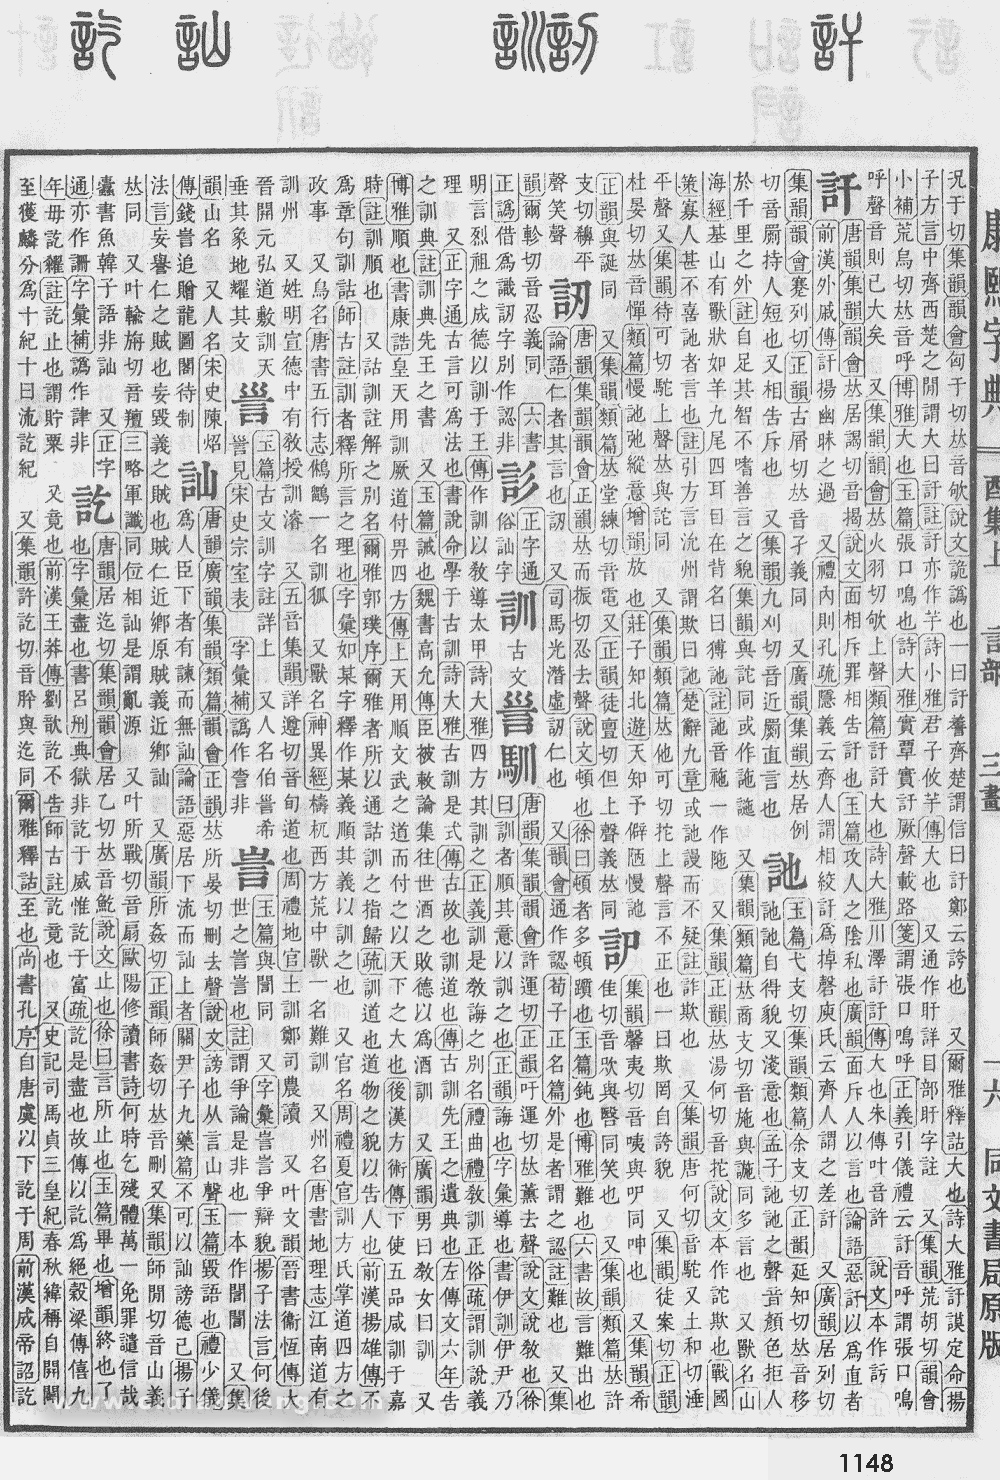 訐 訒 訓 訕 訖
康熙字典 酉集上 言部 三畫 一六 同文書局原版
況于切集韻韻會匈于切𠀤音欨說文詭譌也一曰訏䜝齊楚謂信曰訏鄭云誇也 又爾雅釋詁大也詩大雅訏謨定命揚
子方言中齊西楚之閒謂大曰訏註訏亦作芋詩小雅君子攸芋傳大也 又通作盱詳目部盱字註 又集韻荒胡切韻會
小補荒烏切𠀤音呼博雅大也玉篇張口鳴也詩大雅實覃實訏厥聲載路箋謂張口嗚呼正義引儀禮云訏音呼謂張口鳴
呼聲音則已大矣 又集韻韻會𠀤火羽切欨上聲類篇訏訏大也詩大雅川澤訏訏傳大也朱傳叶音許 說文本作𧥦
訐 唐韻集韻韻會𠀤居謁切音揭說文面相斥罪相告訐也玉篇攻人之陰私也廣韻面斥人以言也論語惡訐以爲直者
前漢外戚傳訐揚幽昧之過 又禮內則孔疏隱義云齊人謂相絞訐爲掉磬庾氏云齊人謂之差訐 又廣韻居列切
集韻韻會蹇列切正韻古屑切𠀤音孑義同 又廣韻集韻𠀤居例
切音罽持人短也又相告斥也 又集韻九刈切音近罽直言也 訑 玉篇弋支切集韻類篇余支切正韻延知切𠀤音移
訑訑自得貌又淺意也孟子訑訑之聲音顏色拒人
於千里之外註自足其智不嗜善言之貌集韻與詑同或作訑䛄 又集韻類篇𠀤商支切音施與䛄同多言也 又獸名山
海經基山有獸狀如羊九尾四耳目在背名曰猼訑註訑音施一作陁 又集韻正韻𠀤湯何切音拕說文本作詑欺也戰國
策寡人甚不喜訑者言也註引方言沇州謂欺曰訑楚辭九章或訑謾而不疑註詐欺也 又集韻唐何切音駝又土和切涶
平聲又集韻待可切駝上聲𠀤與詑同 又集韻類篇𠀤他可切拕上聲言不正也一曰欺罔自誇貌 又集韻徒案切正韻
杜晏切𠀤音憚類篇慢訑弛縱意增韻放也莊子知北遊天知予僻陋慢訑 訆 集韻馨夷切音咦與㕧同呻也 又集韻希
正韻與誕同 又集韻類篇𠀤堂練切音電又正韻徒亶切但上聲義𠀤同
佳切音㰧與䜁同笑也 又集韻類篇𠀤許
支切䊳平
聲笑聲 訒 唐韻集韻韻會正韻𠀤而振切忍去聲說文頓也徐曰頓者多頓躓也玉篇鈍也博雅難也六書故言難出也
論語仁者其言也訒 又司馬光潛虛訒仁也 又韻會通作認荀子正名篇外是者謂之訒註難也 又集
韻爾軫切音忍義同 六書
正譌借爲識訒字別作認非 𧥺 正字通
俗訕字 訓 古文 𧥼 馴 唐韻集韻韻會許運切正韻吁運切𠀤薰去聲說文說敎也徐
曰訓者順其意以訓之也正韻誨也字彙導也書伊訓伊尹乃
明言烈祖之成德以訓于王傳作訓以敎導太甲詩大雅四方其訓之正義訓是敎誨之別名禮曲禮敎訓正俗疏謂訓說義
理 又正字通古言可爲法也書說命學于古訓詩大雅古訓是式傳古故也訓道也傳古訓先王之遺典也左傳文六年告
之訓典註訓典先王之書 又玉篇誡也魏書高允傳臣被敕論集往世酒之敗德以爲酒訓 又廣韻男曰敎女曰訓 又
博雅順也書康誥皇天用訓厥道付畀四方傳上天用順文武之道而付之以天下之大也後漢方術傳下使五品咸訓于嘉
時註訓順也 又詁訓註解之別名爾雅郭璞序爾雅者所以通詁訓之指歸疏訓道也道物之貌以告人也前漢揚雄傳不
爲章句訓詁師古註訓者釋所言之理也字彙如某字釋作某義順其義以訓之也 又官名周禮夏官訓方氏掌道四方之
政事 又鳥名唐書五行志鵂鶹一名訓狐 又獸名神異經檮杌西方荒中獸一名難訓 又州名唐書地理志江南道有
訓州 又姓明宣德中有敎授訓濬 又五音集韻詳遵切音旬道也周禮地官土訓鄭司農讀 又叶文韻晉書衞恆傳大
晉開元弘道敷訓天
垂其象地耀其文 𧥼 玉篇古文訓字註詳上 又人名伯𧥼希
𧥼見宋史宗室表 字彙補譌作訔非 訔 玉篇與誾同 又字彙訔訔爭辯貌揚子法言何後
世之訔訔也註謂爭論是非也一本作誾誾 又集
韻山名 又人名宋史陳炤
傳錢訔追贈龍圖閣待制 訕 唐韻廣韻集韻類篇韻會正韻𠀤所晏切刪去聲說文謗也从言山聲玉篇毀語也禮少儀
爲人臣下者有諫而無訕論語惡居下流而訕上者關尹子九藥篇不可以訕謗德己揚子
法言妄譽仁之賊也妄毀義之賊也賊仁近鄉原賊義近鄉訕 又廣韻所姦切正韻師姦切𠀤音刪又集韻師閒切音山義
𠀤同 又叶輸旃切音羶三略軍讖同位相訕是謂亂源 又叶所戰切音扇歐陽修讀書詩何時乞殘體萬一免罪譴信哉
蠹書魚韓子語非訕 又正字
通亦作譋字彙補譌作𧨣非 訖 唐韻居迄切集韻韻會居乙切𠀤音𩚬說文止也徐曰言所止也玉篇畢也增韻終也了
也字彙盡也書呂刑典獄非訖于威惟訖于富疏訖是盡也故傳以訖爲絕穀梁傳僖九
年毋訖糴註訖止也謂貯粟 又竟也前漢王莽傳劉歆訖不告師古註訖竟也 又史記司馬貞三皇紀春秋緯稱自開闢
至獲麟分爲十紀十曰流訖紀 又集韻許訖切音肸與迄同爾雅釋詁至也尚書孔序自唐虞以下訖于周前漢成帝詔訖
1148